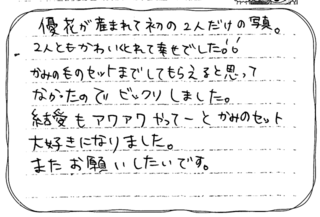 優花が産まれて初の2人だけの写真。
2人ともかわいくとれて幸せでした!!
かみのものセットまでしてもらえると思って
なかたのでビックリしました。
結愛もアワアワやってーとかみのセット
大好きになりました。
またお願いしたいです。